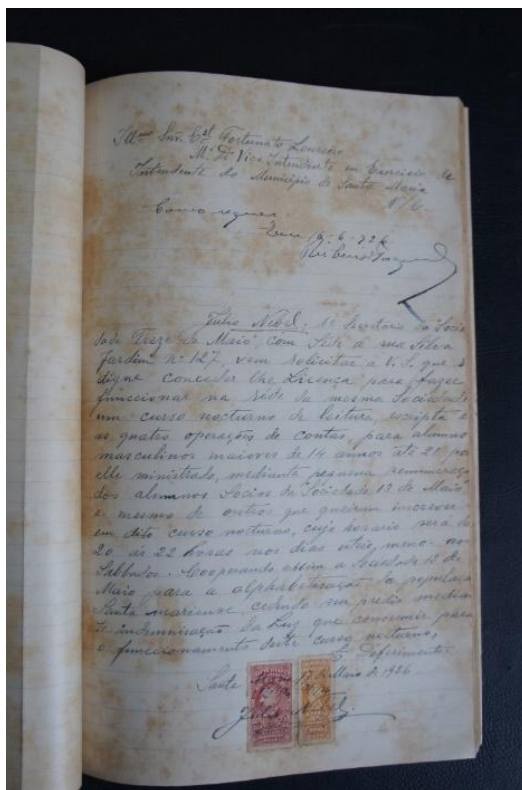 Illmo Snr. Cel Fortunato Loureiro
M. D. Vice Intendente em Exercicio de
Intendente do Municipio de Santa Maria
N/C.
Como requer.
Em 19-6-926
Julio Nebel, 1º Secretario da Socie
dade Treze de Maio, com Séde á rua Silva
Jardim Nº 127, vem solicitar a V. S. que se
digne conceder lhe Licença para fazer
funccionar na séde da mesma Sociedade
um curso nocturno de leitura, escripta e
as quatro operações de contas, para alumnos
masculinos maiores de 14 annos até 21 por
elle ministrado, mediante pequena remuneração
dos alumnos Socios da Sociedade 13 de Maio
e mesmo de outros que queiram inscrever
em dito curso nocturno, cujo horario será de
20 ás 22 horas nos dias uteis, menos aos
Sabbados. Cooperando assim a Sociedade 13 de
Maio para a alphabetisação da população
Santa mariense, cedendo seu predio median
te indemnisação da Luz que consumir para
o funccionamento deste curso nocturno,
E. Deferimento
Santa Maria 17 de Maio de 1926
Julio Nebel